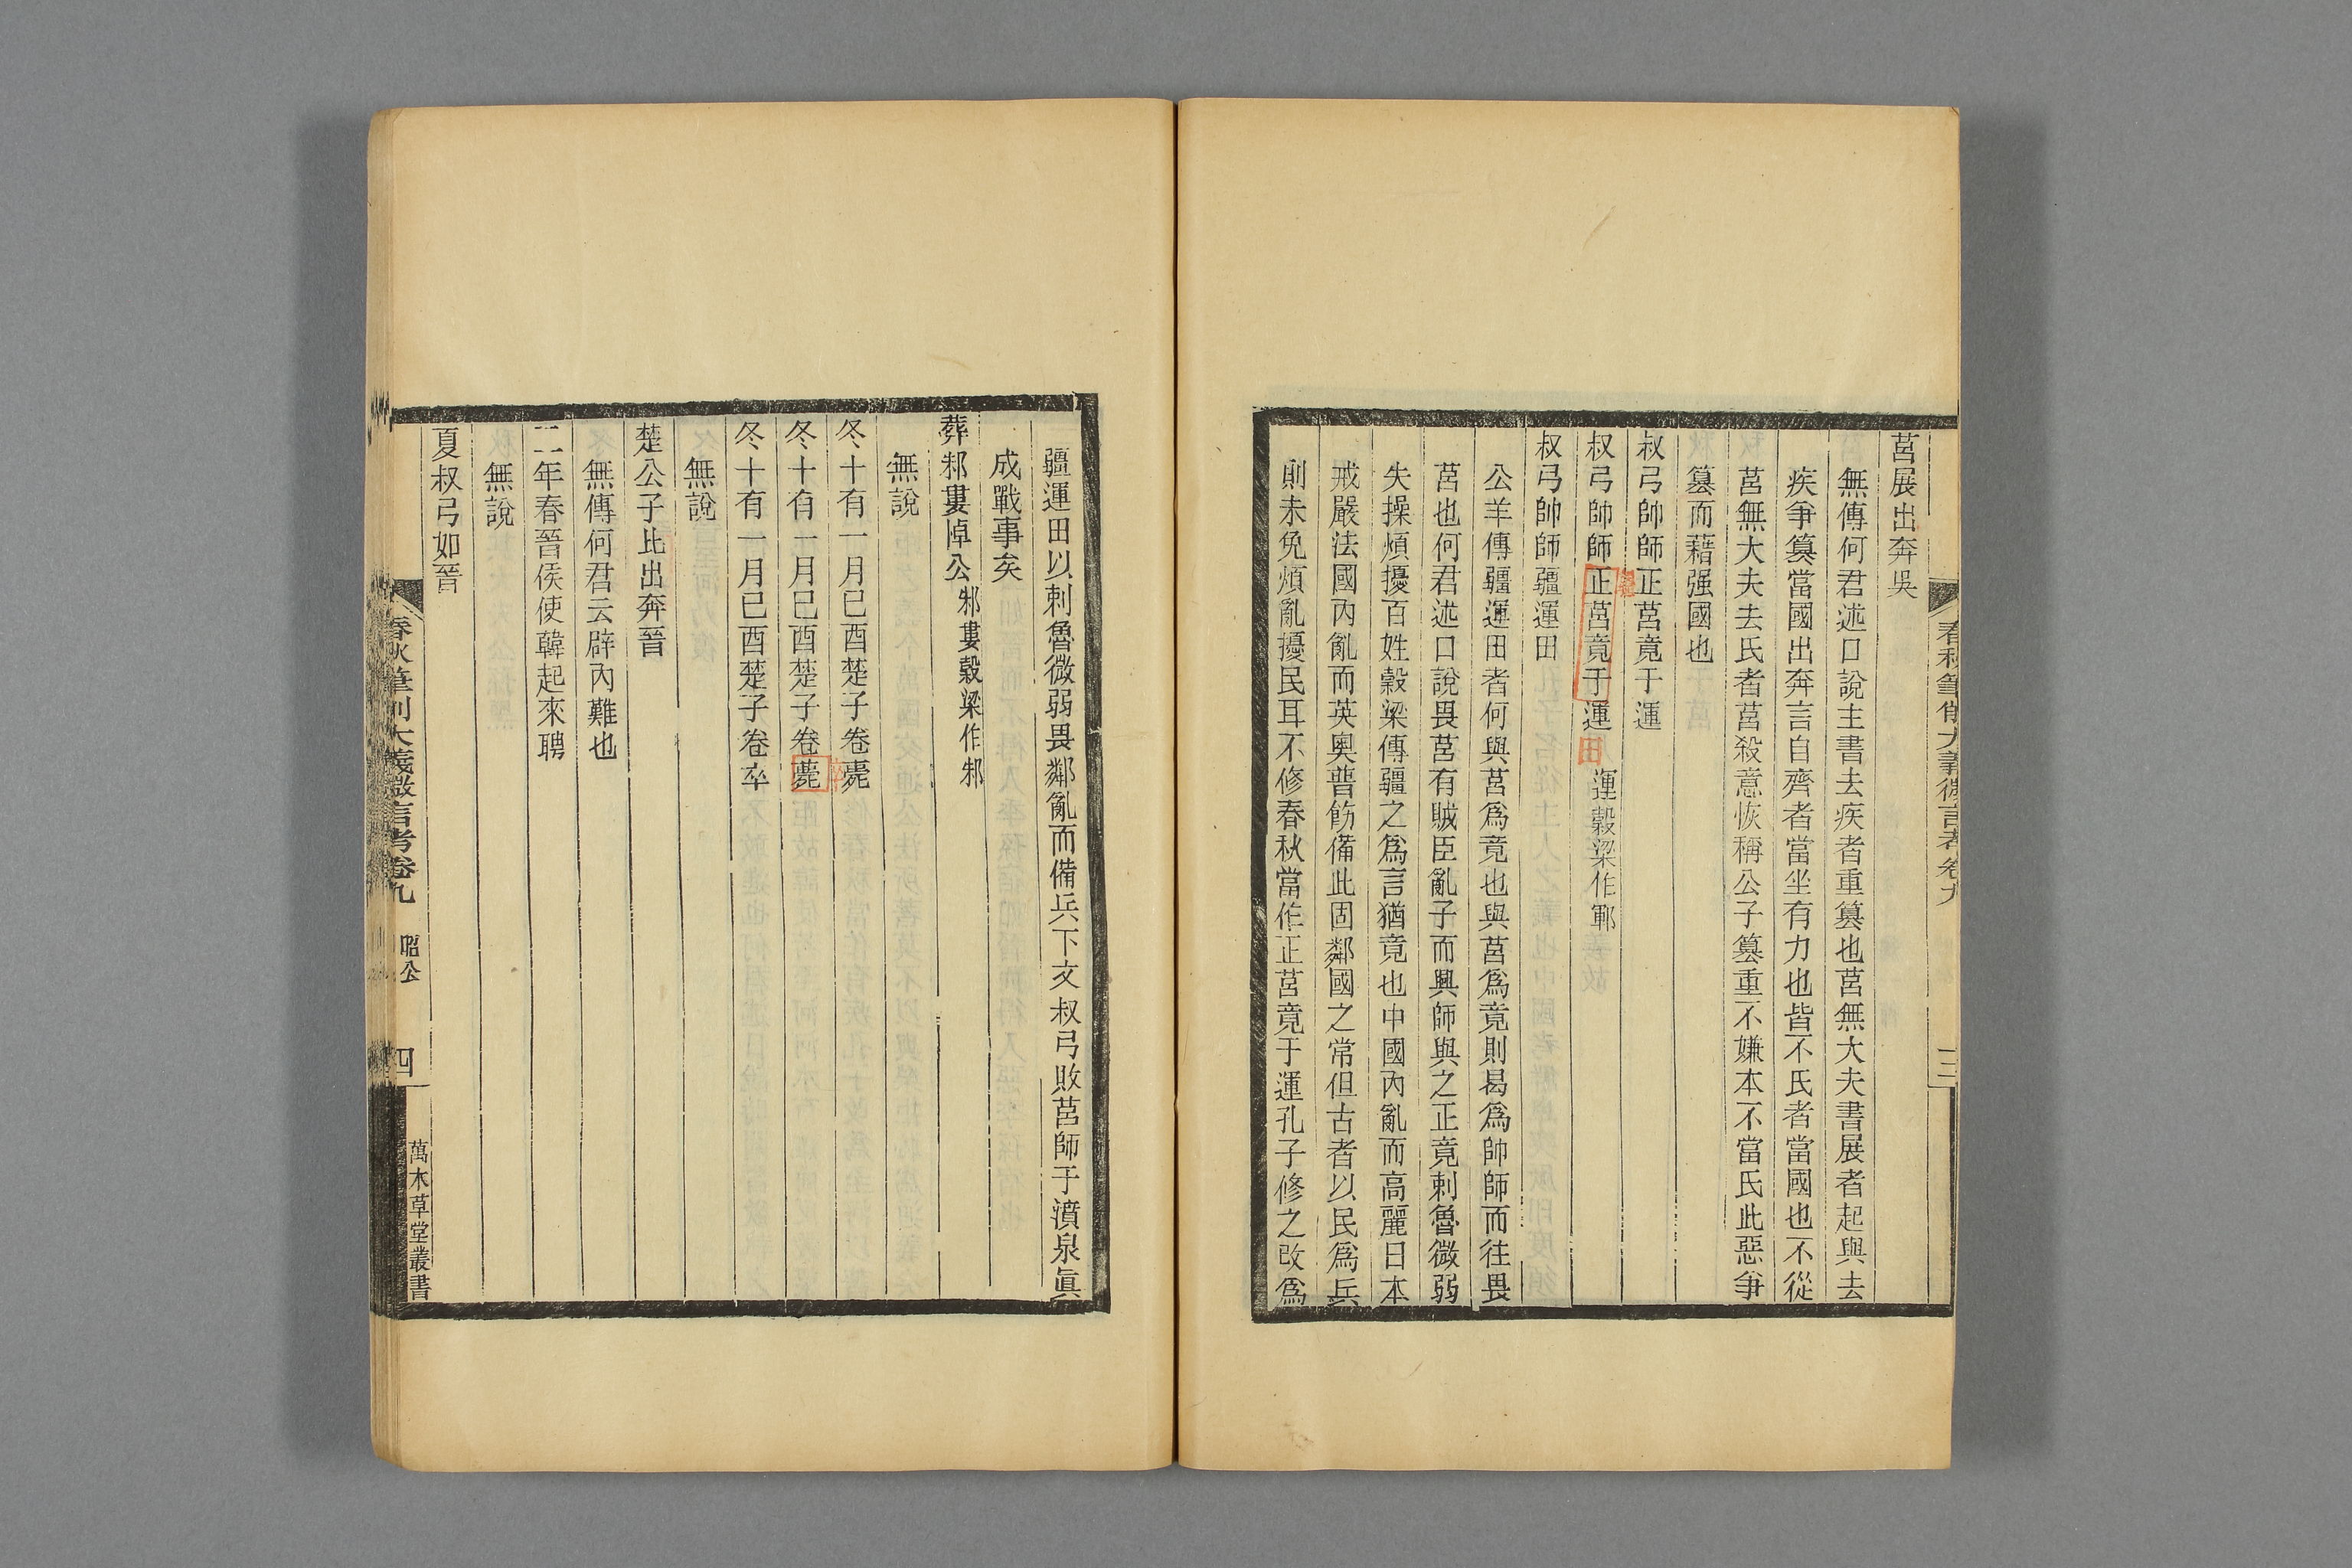 莒展出奔吳
無傳何君述口說主書去疾者重篡也莒無大夫書展者起與去
疾爭篡當國出奔言自齊者當坐有力也皆不氏者當國也不從
莒無大夫去氏者莒殺意恢稱公子篡重不嫌本不當氏此惡爭
篡而藉强國也
叔弓帥師正莒竟于運
疆
叔弓帥師正莒竟于運田運穀梁作鄆
叔弓帥師疆運田
公羊傳疆運田者何與莒爲竟也與莒爲竟則曷爲帥師而往畏
莒也何君述口說畏莒有賊臣亂子而興師與之正竟刺魯微弱
失操煩擾百姓穀梁傳疆之爲言猶竟也中國內亂而高麗日本
戒嚴法國內亂而英奧普飭備此固鄰國之常但古者以民爲兵
則未免煩亂擾民耳不修春秋當作正莒竟于運孔子修之改爲
春秋筆削大義微言考卷九
三
疆運田以刺魯微弱畏鄰亂而備兵下文叔弓敗莒師于濆泉眞
成戰事矣
葬邾婁悼公邾婁穀梁作邾
無說
冬十有一月己酉楚子卷薨
卒
冬十有一月己酉楚子卷薨
冬十有一月己酉楚子卷卒
無說
楚公子比出奔晉
無傳何君云辟內難也
二年春晉侯使韓起來聘
無說
夏叔弓如晉
春秋筆削大義微言考卷九 昭公 四 萬木草堂叢書